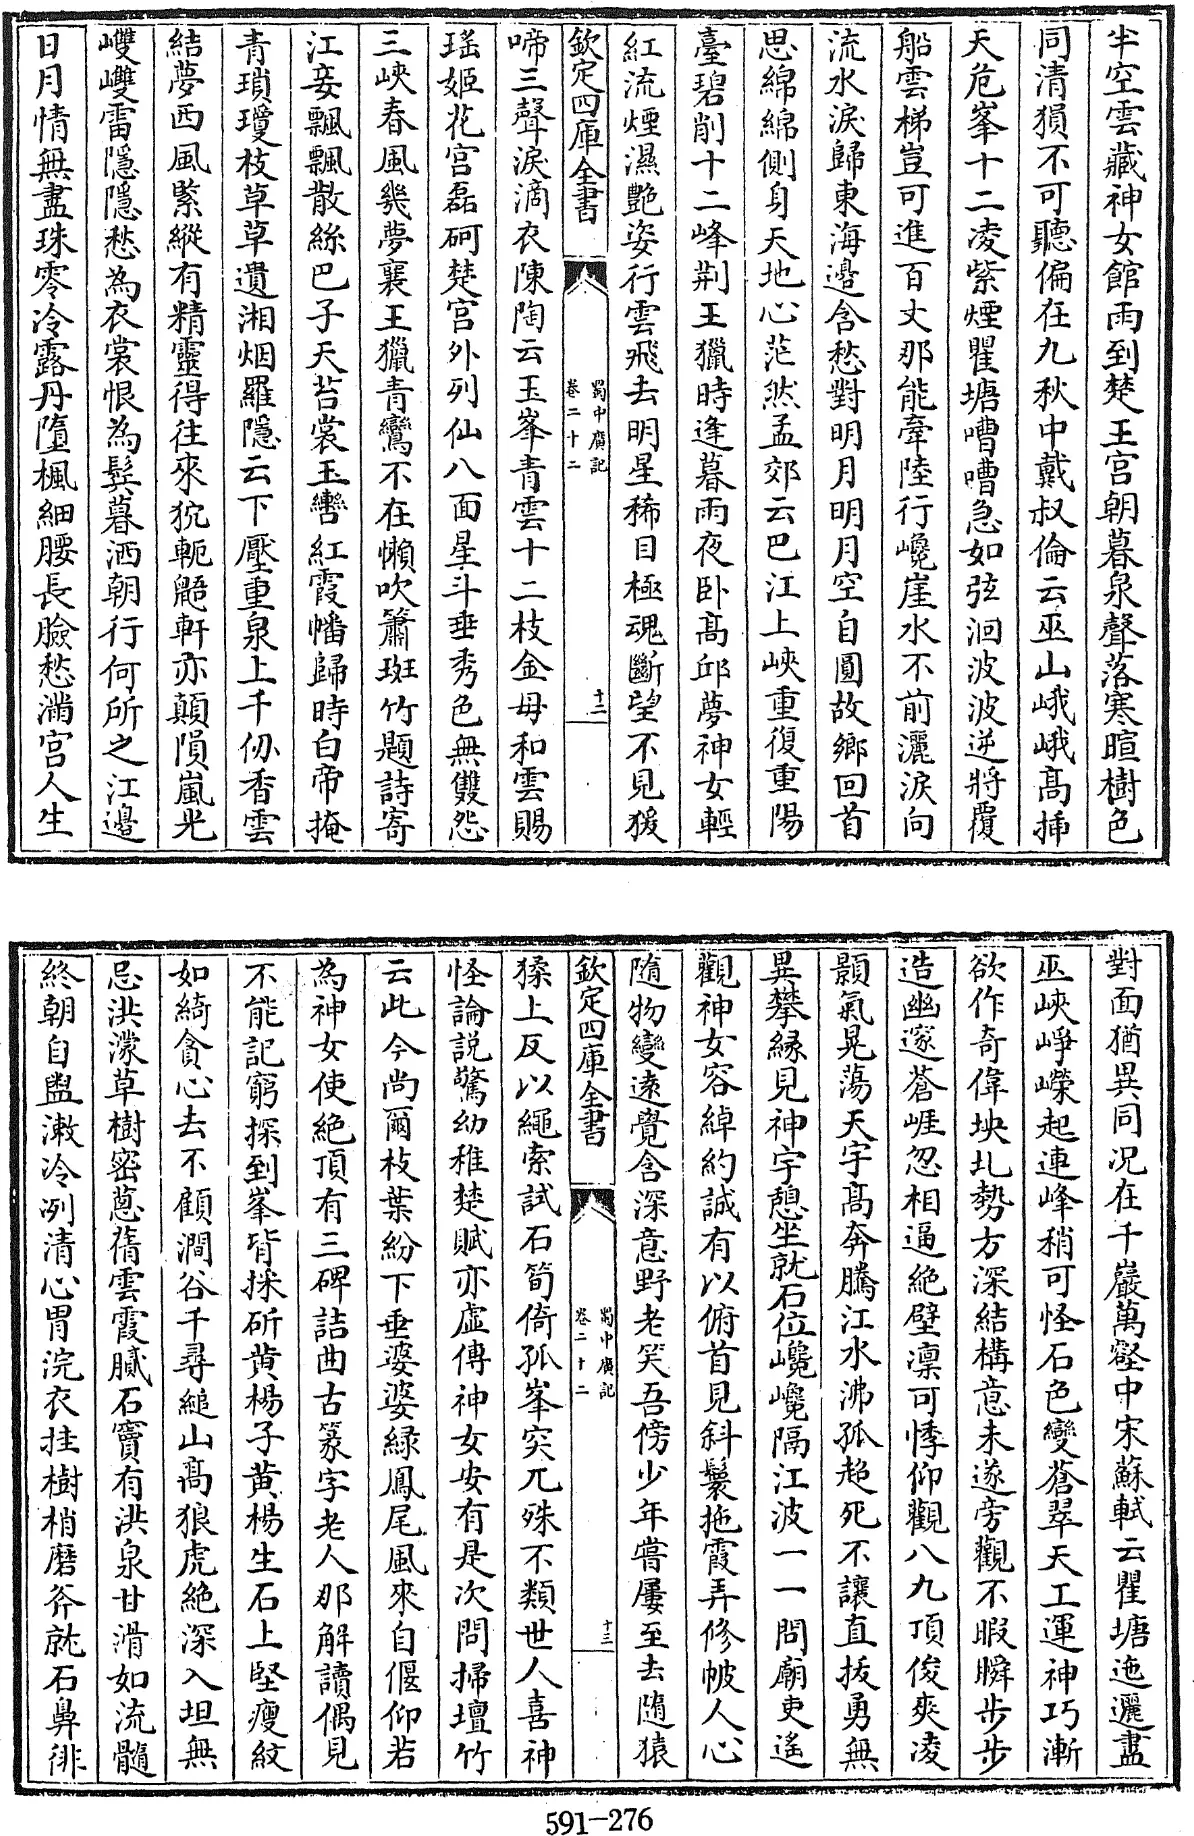 半空雲藏神女館雨到楚王宫朝暮泉聲落寒暄樹色
同清猿不可聽偏在九秋中戴叔倫云巫山峨峨高挿
天危峯十二凌紫煙瞿塘嘈嘈急如弦洄波波逆將覆
船雲梯豈可進百丈那能牽陸行巉崖水不前灑淚向
流水淚歸東海邊含愁對明月明月空自圓故鄉回首
思綿綿側身天地心茫然孟郊云巴江上峽重復重陽
臺碧削十二峰荆王獵時逢暮雨夜卧高邱夢神女輕
紅流煙濕艷姿行雲飛去明星稀目極魂斷望不見猨
欽定四庫全書
蜀中廣記
卷二十二
十二
啼三聲淚滴衣陳陶云玉峯青雲十二枝金母和雲賜
瑶姬花宫磊砢楚宫外列仙八面星斗垂秀色無雙怨
三峽春風幾夢襄王獵青鸞不在懶吹簫斑竹題詩寄
江妾飄飄散絲巴子天苔裳玉轡紅霞幡歸時白帝掩
青瑣瓊枝草草遺湘烟羅隱云下壓重泉上千仞香雲
結夢西風緊縱有精靈得往來狖軛鼯軒亦顛隕嵐光
雙雙雷隱隱愁為衣裳恨為鬂暮洒朝行何所之江邊
日月情無盡珠零冷露丹墮楓細腰長臉愁滿宫人生
對面猶異同况在千巖萬壑中宋蘇軾云瞿塘迤邐盡
巫峽崢嶸起連峰稍可怪石色變蒼翠天工運神巧漸
欲作奇偉坱圠勢方深結構意未遂旁觀不暇瞬步步
造幽邃蒼崖忽相逼絶壁凛可悸仰觀八九頂俊爽凌
顥氣晃蕩天宇高奔騰江水沸孤超死不讓直拔勇無
異攀縁見神宇憩坐就石位巉巉隔江波一一問廟吏遥
觀神女容綽約誠有以俯首見斜鬟拖霞弄修帔人心
隨物變遠覺含深意野老笑吾傍少年嘗屢至去隨猿
欽定四庫全書
蜀中廣記
卷二十二
十三
猱上反以繩索試石筍倚孤峯突兀殊不類世人喜神
怪論説驚幼稚楚賦亦虚傳神女安有是次問掃壇竹
云此今尚爾枝葉紛下垂婆婆緑鳳尾風來自偃仰若
為神女使絶頂有三碑詰曲古篆字老人那解讀偶見
不能記窮探到峯背採斫黄楊子黄楊生石上堅瘦紋
如綺貪心去不顧澗谷千尋縋山高狼虎絶深入坦無
忌洪濛草樹密蔥蒨雲霞膩石竇有洪泉甘滑如流髓
終朝自盥漱冷冽清心胃浣衣挂樹梢磨斧就石鼻徘
591-276